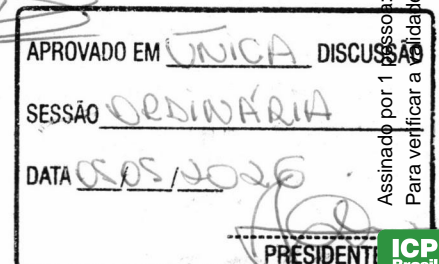 APROVADO EM ÚNICA DISCUSSÃO
SESSÃO ORDINÁRIA
DATA 05/05/2026
PRESIDENTE
Assinado por 1 pessoa:
Para verificar a validade
ICP
Brasil